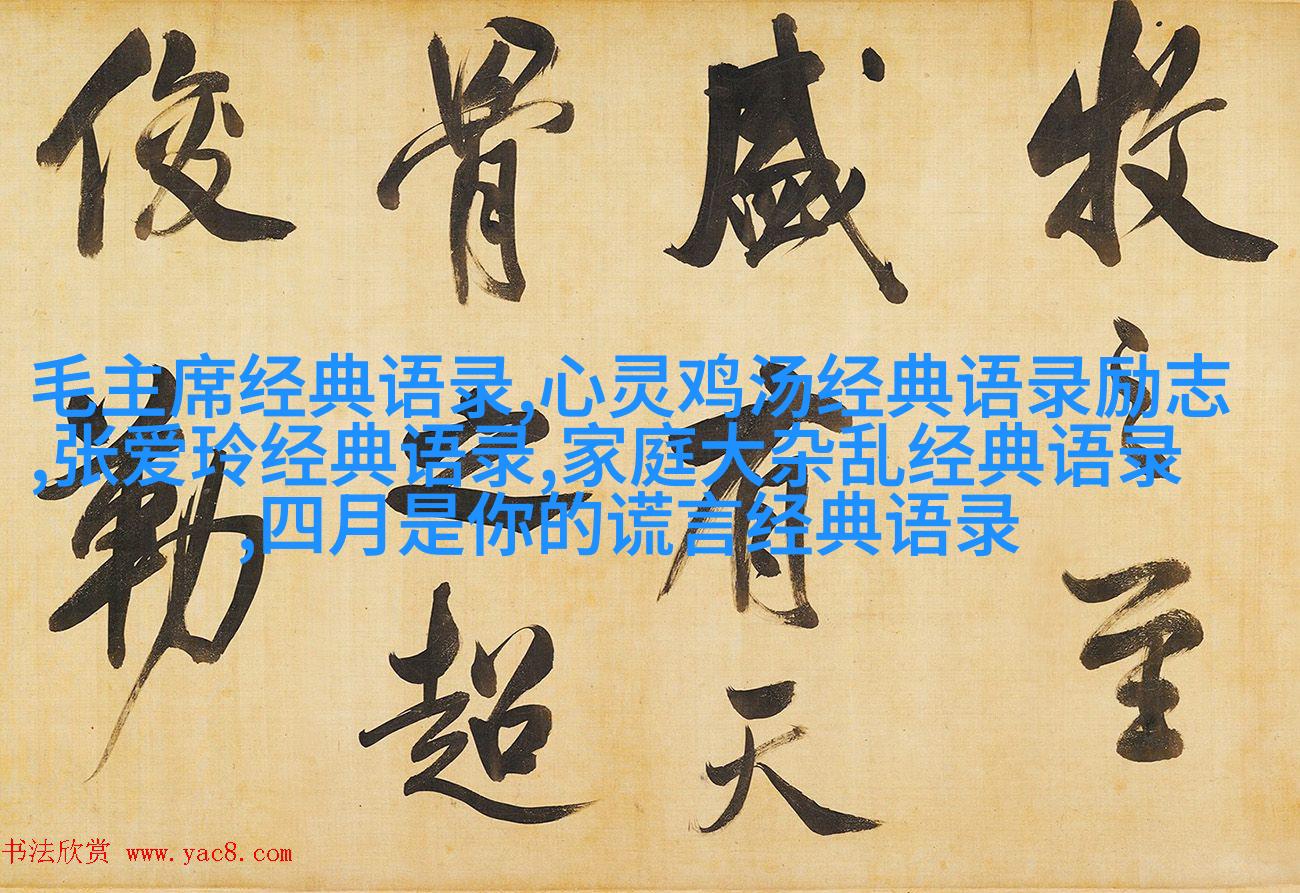 牧之至
盛有天
骨之超
俊勒
毛主席经典语录,心灵鸡汤经典语录励志
,张爱玲经典语录,家庭大杂乱经典语录
,四月是你的谎言经典语录
书法欣赏 www.yac8.com